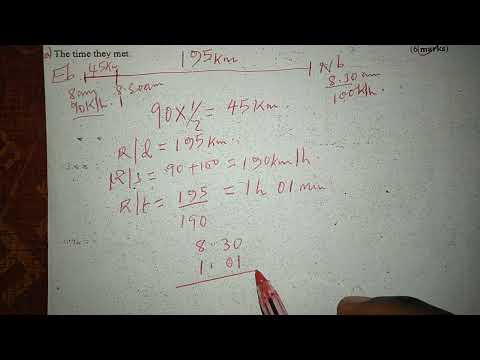 a) The time they met. (6 marks)
Eb 45km 195km N/b
8am 8.30am 8.30am
90K/h 100k/h
90 x 1/2 = 45 Km.
R/d = 195 km.
R/s = 90 + 100 = 190 km/h
R/t = 195/190 = 1h 01 min
8.30
1.01